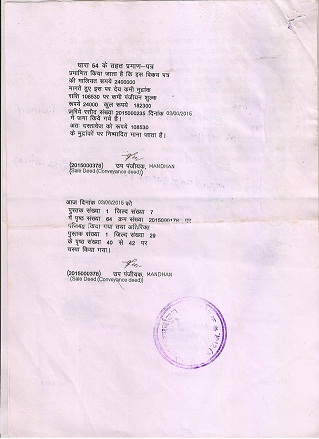 धारा 54 के तहत प्रमाण-पत्र
प्रमाणित किया जाता है कि इस विक्रय पत्र
की मालियत रूपये 2400000
मानते हुए इस पर देय कमी मुद्रांक
राशि 108530 पर कमी पंजीयन शुल्क
रूपये 24000 कुल रूपये 182300
जरिये रसीद संख्या 2015000235 दिनांक 03/06/2015
में जमा किये गये हैं।
अतः दस्तावेज को रूपये 108530
के मुद्रांकों पर निष्पादित माना जाता हैं।
(2015000378) उप पंजीयक, MANDHAN
(Sale Deed (Conveyance deed))
आज दिनांक 03/06/2015 को
पुस्तक संख्या 1 जिल्द संख्या 7
में पृष्ठ संख्या 64 क्रम संख्या पर
पंजिबद्ध किया गया तथा अतिरिक्त
पुस्तक संख्या 1 जिल्द संख्या 29
के पृष्ठ संख्या 40 से 42 पर
चस्पा किया गया।
(2015000378) उप पंजीयक, MANDHAN
(Sale Deed (Conveyance deed))